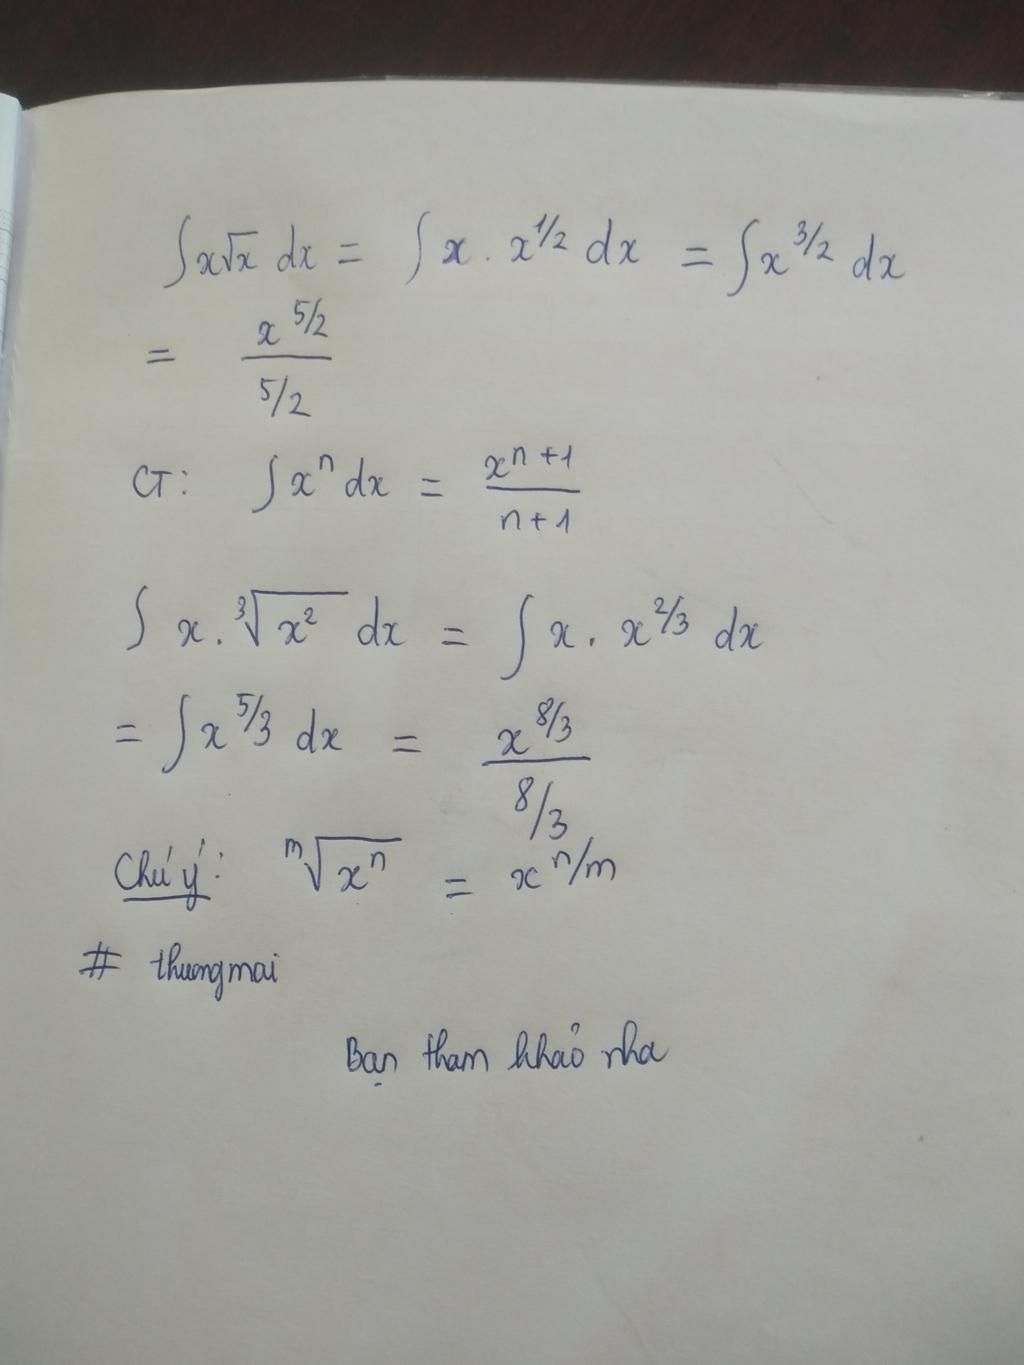 ∫x√x dx = ∫ x . x^{1/2} dx = ∫x^{3/2} dx
= x^{5/2} / 5/2
CT: ∫x^n dx = x^{n+1} / n+1
∫ x . ∛x² dx = ∫ x . x^{2/3} dx
= ∫x^{5/3} dx = x^{8/3} / 8/3
Chú ý: ᵐ√xⁿ = x^{n/m}
# thuongmai
Bạn tham khảo nha